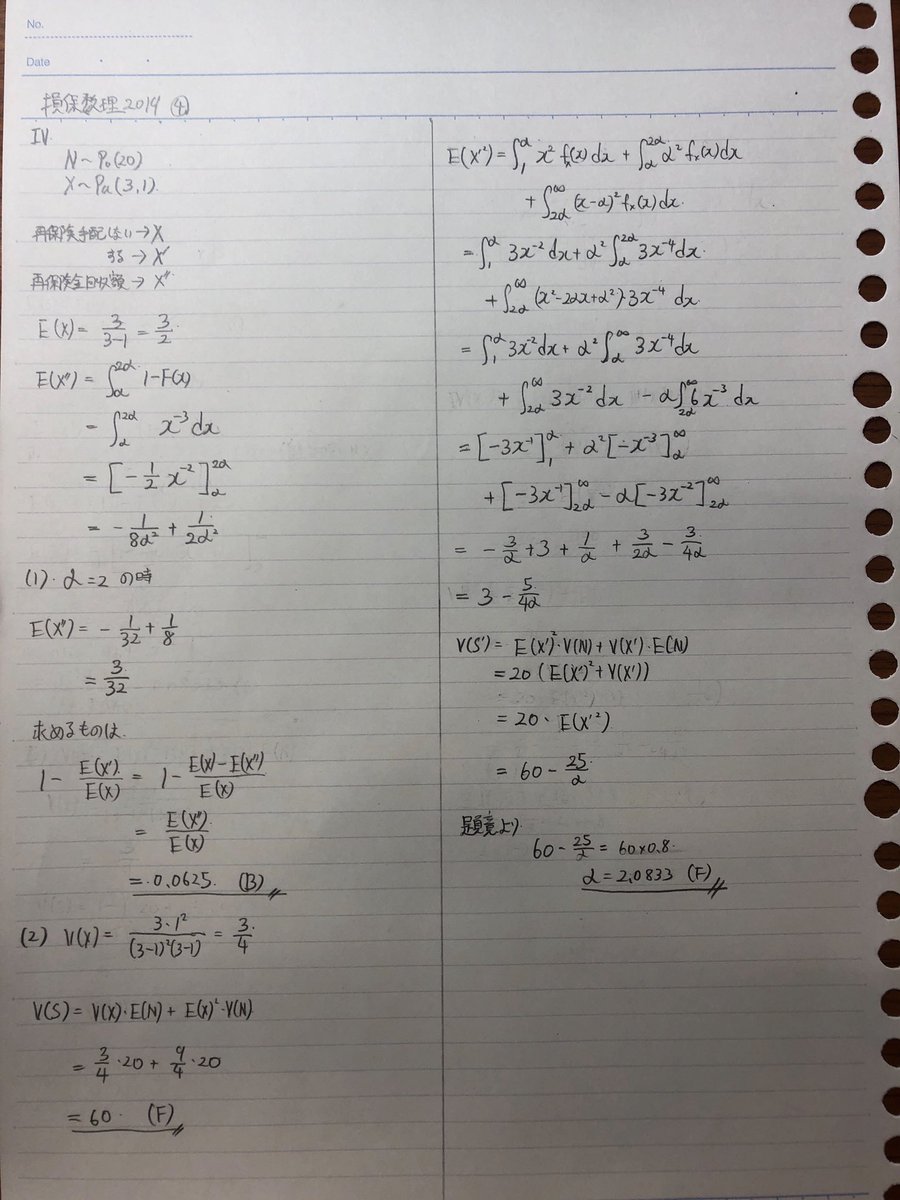 No.
Date
損保数理2019 ④
IV
N~Po(20)
X~Pa(3,1)
再保険手配しない→X
する→X'
再保険金回収額→X''
E(X) = 3/(3-1) = 3/2
E(X'') = ∫_α^{2α} 1-F(x)
= ∫_α^{2α} x^{-3} dx
= [-1/2 x^{-2}]_α^{2α}
= -1/(8α²) + 1/(2α²)
(1). α=2 の時
E(X'') = -1/32 + 1/8
= 3/32
求めるものは
1 - E(X')/E(X) = 1 - (E(X)-E(X''))/E(X)
= E(X'')/E(X)
= 0.0625. (B)
(2) V(X) = 3·1²/((3-1)²(3-1)) = 3/4
V(S) = V(X)·E(N) + E(X)²·V(N)
= 3/4·20 + 9/4·20
= 60. (F)
E(X'²) = ∫_1^α x² f_X(x) dx + ∫_α^{2α} α² f_X(x) dx
+ ∫_{2α}^∞ (x-α)² f_X(x) dx.
= ∫_1^α 3x^{-2} dx + α² ∫_α^{2α} 3x^{-4} dx.
+ ∫_{2α}^∞ (x²-2αx+α²)·3x^{-4} dx.
= ∫_1^α 3x^{-2} dx + α² ∫_α^∞ 3x^{-4} dx
+ ∫_{2α}^∞ 3x^{-2} dx - α ∫_{2α}^∞ 6x^{-3} dx
= [-3x^{-1}]_1^α + α² [-x^{-3}]_α^∞
+ [-3x^{-1}]_{2α}^∞ - α [-3x^{-2}]_{2α}^∞
= -3/α + 3 + 1/α + 3/(2α) - 3/(4α)
= 3 - 5/(4α)
V(S') = E(X')²·V(N) + V(X')·E(N)
= 20 (E(X')² + V(X'))
= 20· E(X'²)
= 60 - 25/α
題意より
60 - 25/α = 60×0.8
α = 2.0833 (F)